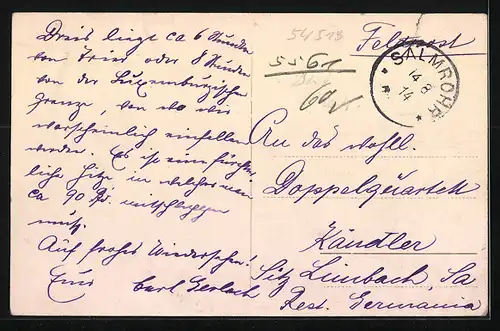 Dries liegt ca 6 Stunden
von Trier oder 8 Stunden
von der Luxemburgische
Grenze, von wo wir
warscheinlich einfallen
werden. Es ist eine fürchter
liche Hitze in welcher man
ca 90 Pf. mitschleppen
muß.
Auf frohes Wiedersehen!
Euer Carl Gerlach
54513
Feldpost
5561
60
SALMROHR
14 8
14
An das wohll.
Doppelquartett
Kändler
Sitz Limbach, Sa
Rest. Germania